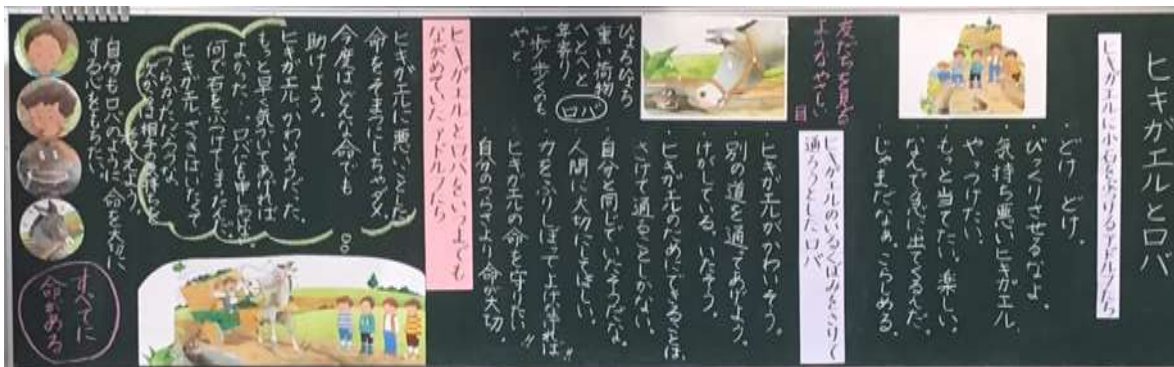 ヒキガエルとロバ
ヒキガエルに小石をぶつけるアドルフたち
どけ どけ。
びっくりさせるなよ。
気持ち悪いヒキガエル
やっつけたい。
もっと当てたい。楽しい。
なんで急に出てくるんだ。
じゃまだなぁ。こらしめる。
友だちを見る
ような やさしい
目
ヒキガエルのいるくぼみをさけて
通ろうとしたロバ
ヒキガエルがかわいそう。
別の道を通ってあげよう。
けがしている。いたそう。
ヒキガエルのためにできることは、
さけて通ることしかない。
自分と同じでいたそうだな。
人間に大切にしてほしい。
力をふりしぼって上げなければ!!
ヒキガエルの命を守りたい!!
自分のつらさより命が大切。
ひょろひょろ
重い荷物
へとへと ロバ
年寄り
一歩歩くのも
やっと…
ヒキガエルとロバをいつまでも
ながめていたアドルフたち
ヒキガエルに悪いことした
命をそまつにしちゃダメ
今度はどんな命でも
助けよう。
ヒキガエル、かわいそうだった。
もっと早く気づいてあげれば
よかった…。ロバにも申しわけない
何で石をぶつけてしまったんだ。
ヒキガエル、ごめんなさい
つらかっただろうな。
次からは相手の気持ちを
考えよう。
自分もロバのように命を大切に
する心をもちたい。
すべてに
命がある